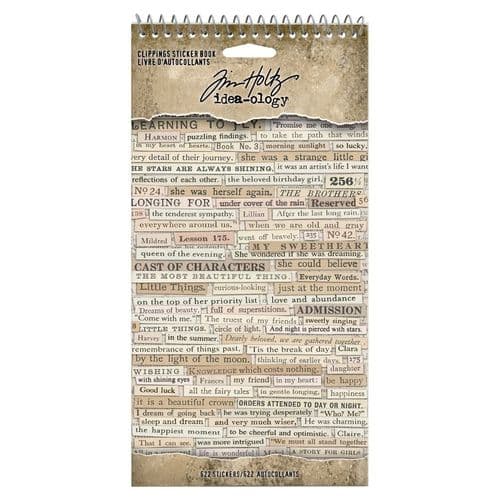 CLIPPINGS STICKER BOOK
LIVRE D'AUTOCOLLANTS
Tim Holtz
idea-ology
LEARNING TO FLY. "Promise me one
HARMON puzzling findings. to take the path that winds
in my heart of hearts. Book No. 3 morning sunlight so lucky.
very detail of their journey. she was a strange little gi
THE STARS ARE ALWAYS SHINING. it was an artist's life I want
reflections of each other. the beloved birthday girl, 256¼
No 24. she was herself again. THE BROTHER
LONGING FOR under cover of the rain. Reserved 56
138 the tenderest sympathy. Lillian After the last long rain.
everywhere around us." when we are old and gray
Mildred Lesson 175. went off bravely. 235 No 42.
MY SWEETHEART
queen of the evening. She wondered if she was dreaming.
CAST OF CHARACTERS she could believe
THE MOST BEAUTIFUL THING. Everyday Words.
Little Things. curious-looking just at the moment
on the top of her priority list love and abundance
Dreams of beauty. full of superstitions. ADMISSION
"Come with me." The truest of my friends sweetly singing
LITTLE THINGS. circle of light. And night is pierced with stars.
Harvey in the summer. Dearly beloved, we are gathered together
remembrance of things past. 'Tis the break of day. Clara
by the light of the moon. thinking of earlier days. 175
WISHING KNOWLEDGE which costs nothing. daughter
with shining eyes Frances my friend in my heart: be happy
Good luck all the fairy tales in gentle longing. happiness
it is a beautiful crown ORDERS ATTENDED TO DAY OR NIGHT.
I dream of going back he was trying desperately "Who? Me?"
sleep and dream and very much wiser, He was charming.
the happiest moment to be cheerful and optimistic. Claire.
That I can see. was more intrigued "We must all stand together
A STORY FOR GIRLS
622 STICKERS/622 AUTOCOLLANTS